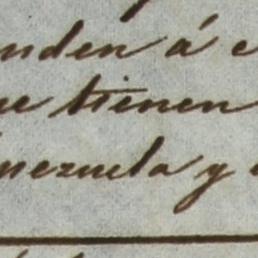 nden á e
ue tienen
nezuela y